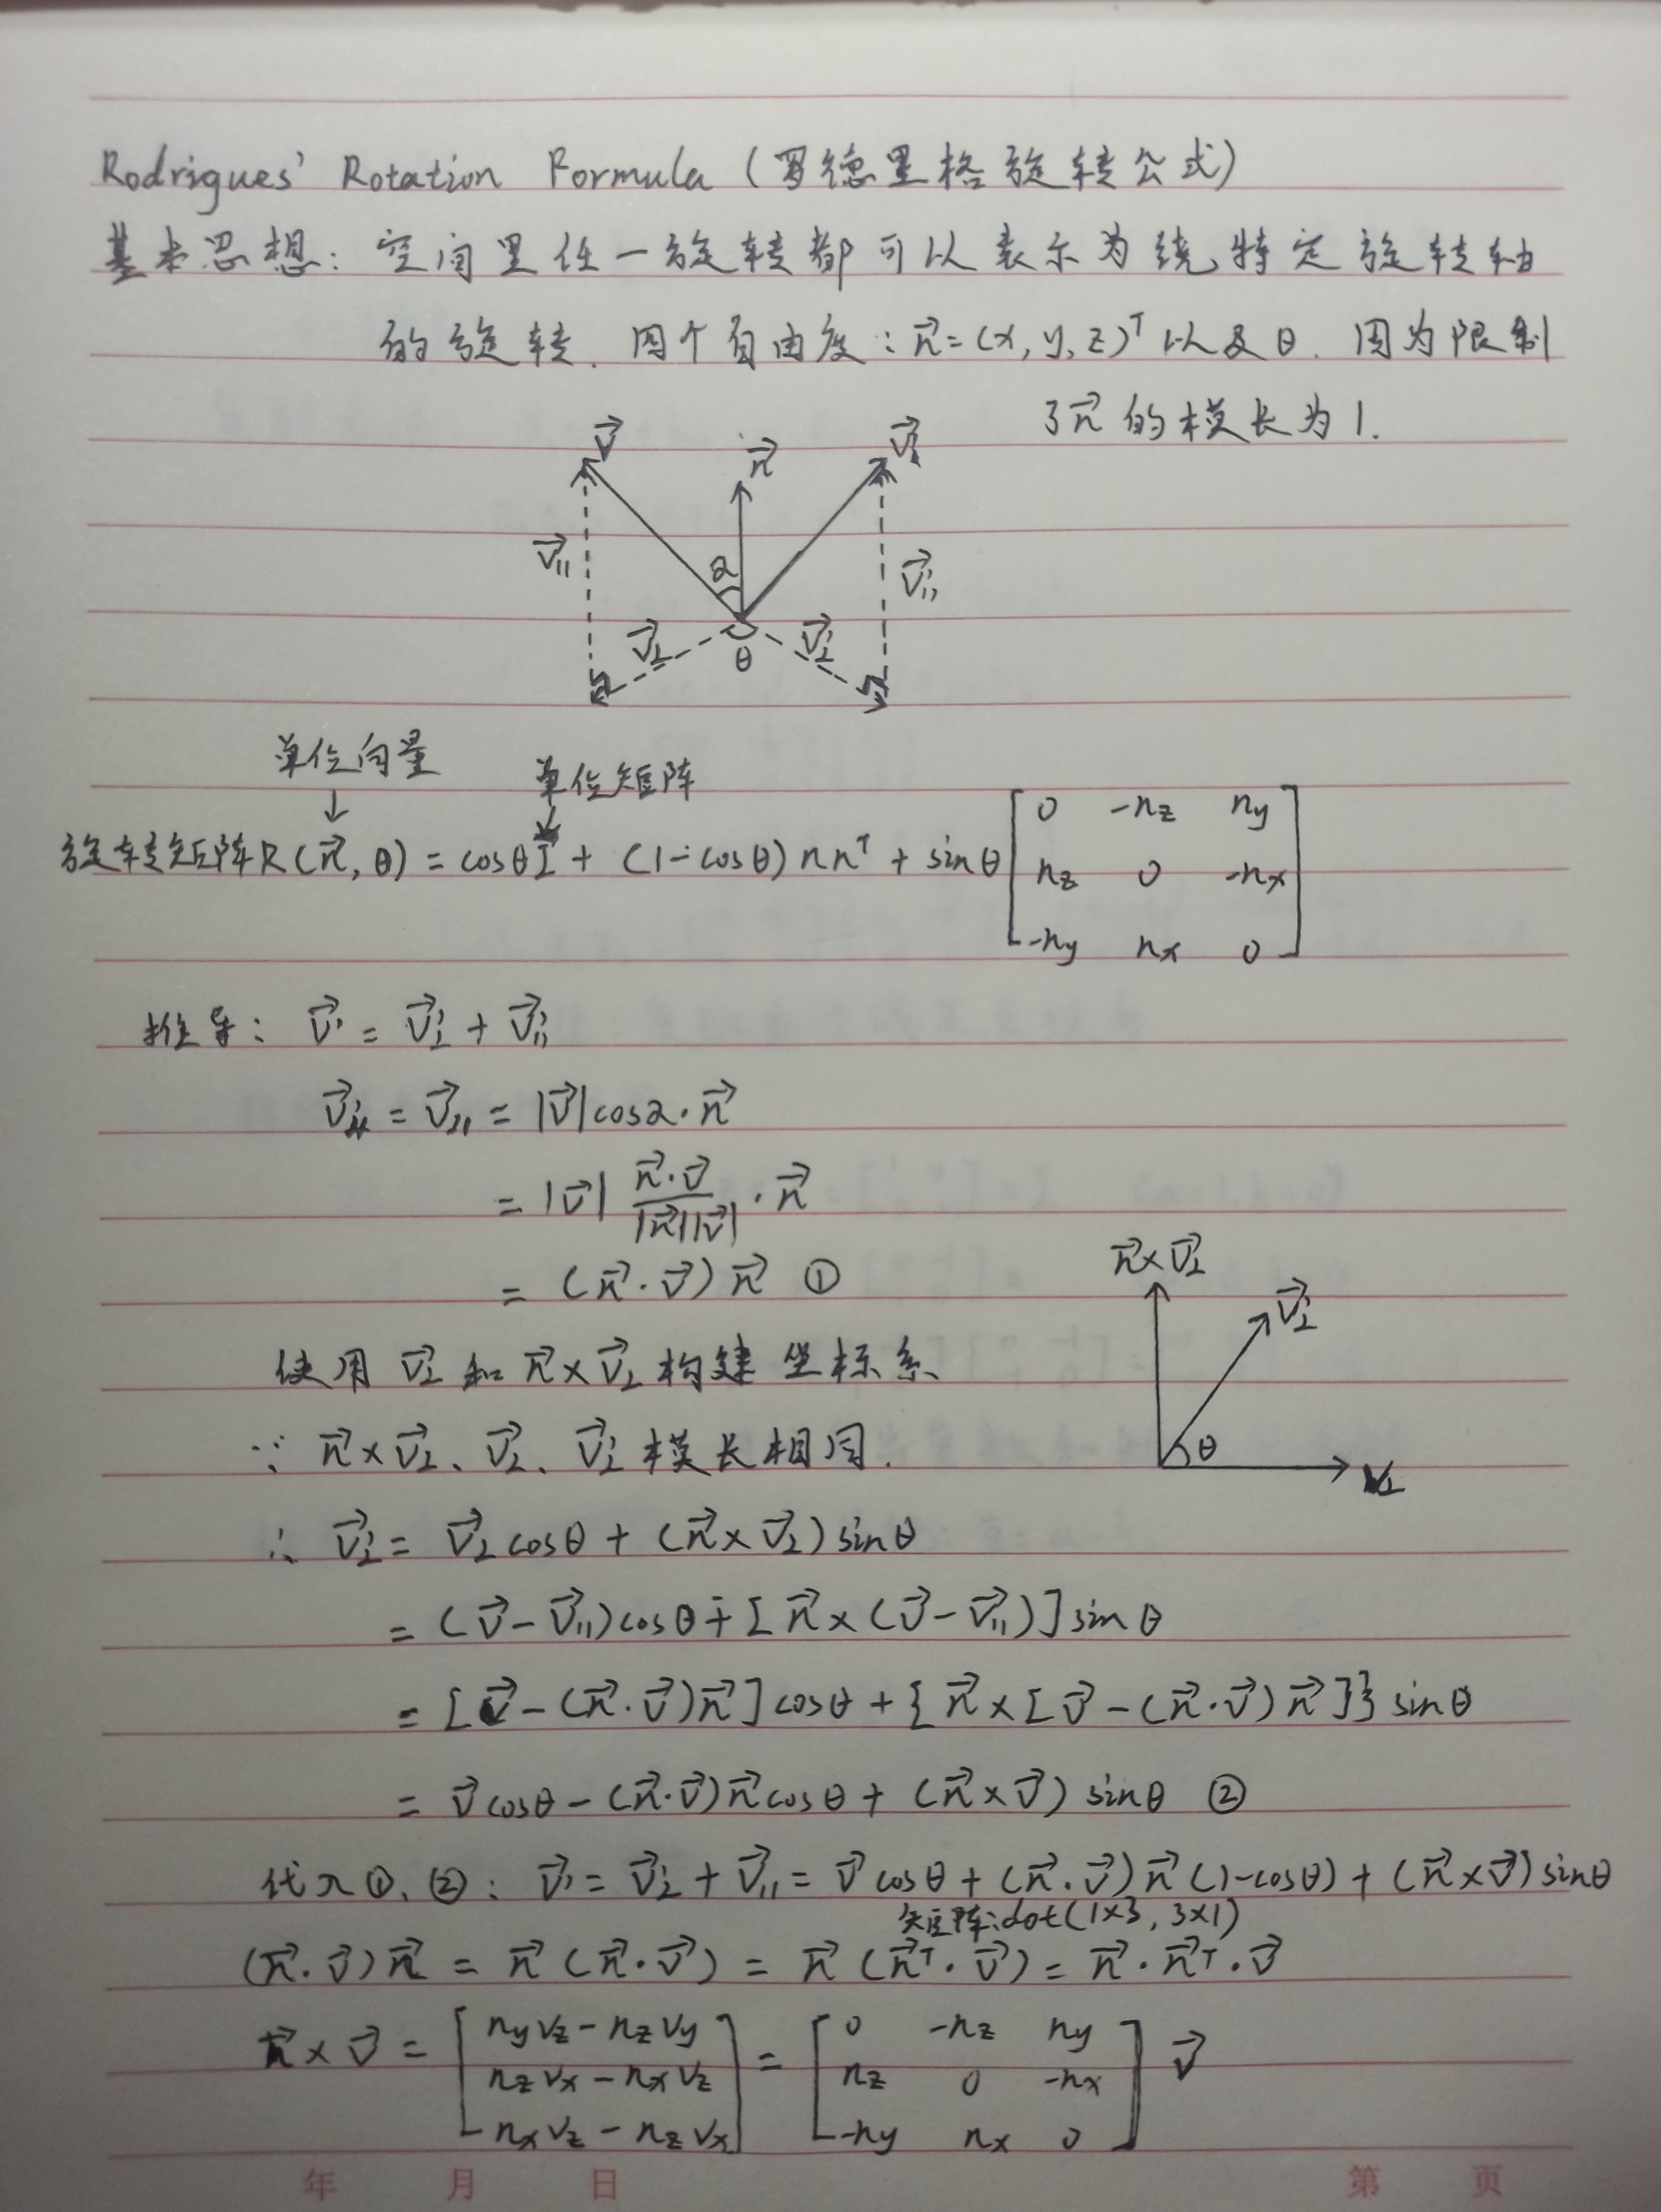 Rodrigues' Rotation Formula (罗德里格旋转公式)
基本思想: 空间里任一旋转都可以表示为绕特定旋转轴
的旋转. 四个自由度: n⃗=(x,y,z)ᵀ以及θ. 因为限制
了n⃗的模长为1.
v⃗ n⃗ v⃗'
v⃗∥ α v⃗'∥
v⃗⊥ θ v⃗'⊥
单位向量 单位矩阵
↓ ↓
旋转矩阵R(n⃗,θ) = cosθI + (1-cosθ)nnᵀ + sinθ [0 -nz ny; nz 0 -nx; -ny nx 0]
推导: v⃗' = v⃗'⊥ + v⃗'∥
v⃗'∥ = v⃗∥ = |v⃗|cosα·n⃗
= |v⃗| (n⃗·v⃗)/(|n⃗||v⃗|) ·n⃗
= (n⃗·v⃗)n⃗ ①
n⃗×v⃗⊥ v⃗'⊥
使用 v⃗⊥ 和 n⃗×v⃗⊥ 构建坐标系
∵ n⃗×v⃗⊥、v⃗⊥、v⃗'⊥ 模长相同.
θ v⊥
∴ v⃗'⊥ = v⃗⊥cosθ + (n⃗×v⃗⊥)sinθ
= (v⃗-v⃗∥)cosθ+[n⃗×(v⃗-v⃗∥)]sinθ
= [v⃗-(n⃗·v⃗)n⃗]cosθ+{n⃗×[v⃗-(n⃗·v⃗)n⃗]}sinθ
= v⃗cosθ-(n⃗·v⃗)n⃗cosθ+(n⃗×v⃗)sinθ ②
代入①、②: v⃗'=v⃗'⊥+v⃗∥=v⃗cosθ+(n⃗·v⃗)n⃗(1-cosθ)+(n⃗×v⃗)sinθ
矩阵:dot(1×3, 3×1)
(n⃗·v⃗)n⃗ = n⃗(n⃗·v⃗) = n⃗(n⃗ᵀ·v⃗) = n⃗·n⃗ᵀ·v⃗
n⃗×v⃗ = [nyvz-nzvy; nzvx-nxvz; nxvz-nzvx] = [0 -nz ny; nz 0 -nx; -ny nx 0] v⃗
年 月 日 第 页